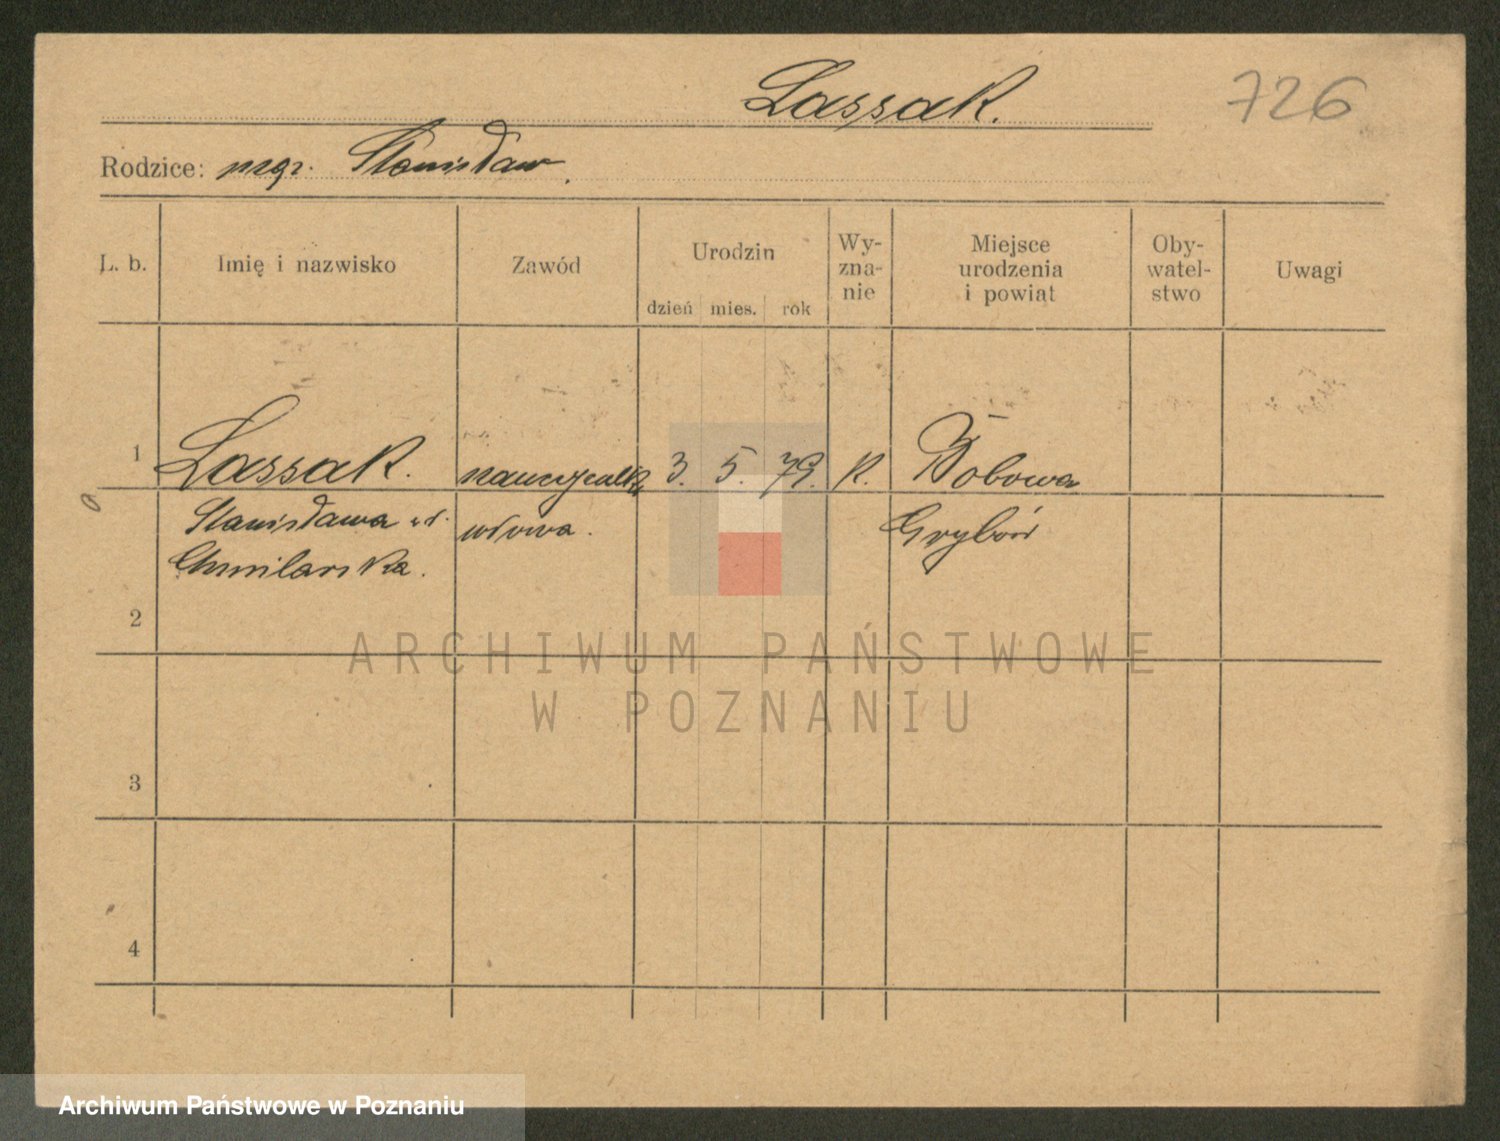 Lassak.
726
Rodzice: mgr. Stanisław.
L. b.
Imię i nazwisko
Zawód
Urodzin
dzień mies. rok
Wy-
zna-
nie
Miejsce
urodzenia
i powiat
Oby-
watel-
stwo
Uwagi
1 Lassak. 3. 5. 79. K. Bobowa
Stanisława wdowa. Grybów
2
ARCHIWUM PAŃSTWOWE
W POZNANIU
3
4
Archiwum Państwowe w Poznaniu